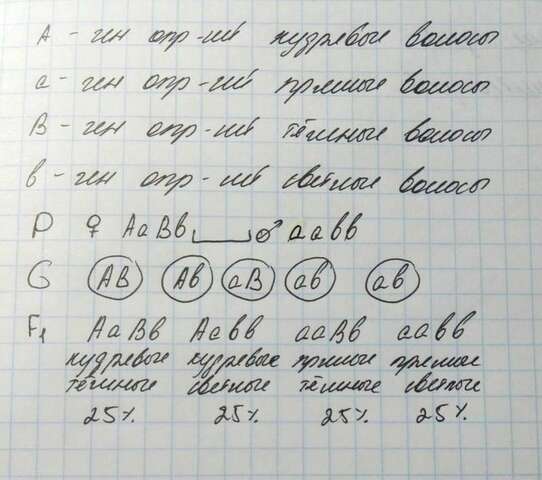 А - ген опр-ий кудревые волосы
а - ген опр-ий прямые волосы
В - ген опр-ий тёмные волосы
в - ген опр-ий светлые волосы
P ♀ АаВв ♂ аавв
G АВ Ав аВ ав ав
F₁ АаВв Аавв ааВв аавв
кудревые кудревые прямые прямые
тёмные светлые тёмные светлые
25% 25% 25% 25%